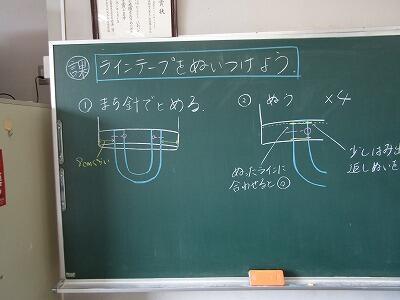 課 ラインテープをぬいつけよう.
① まち針でとめる.
8cmくらい
② ぬう ×4
ぬったラインに
合わせると◎
少しはみ出
返しぬいを